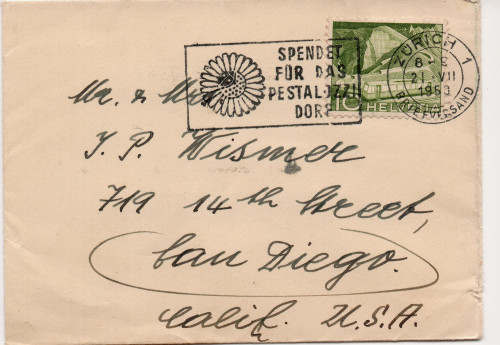 SPENDET
FÜR DAS
PESTALOZZI
DORF
ZÜRICH 1
8-
21.VII
1953
BRIEFVERSAND
10 HELVETIA
Mr. & Mrs.
J. P. Wismer
719 14th Street,
San Diego.
Calif. U.S.A.